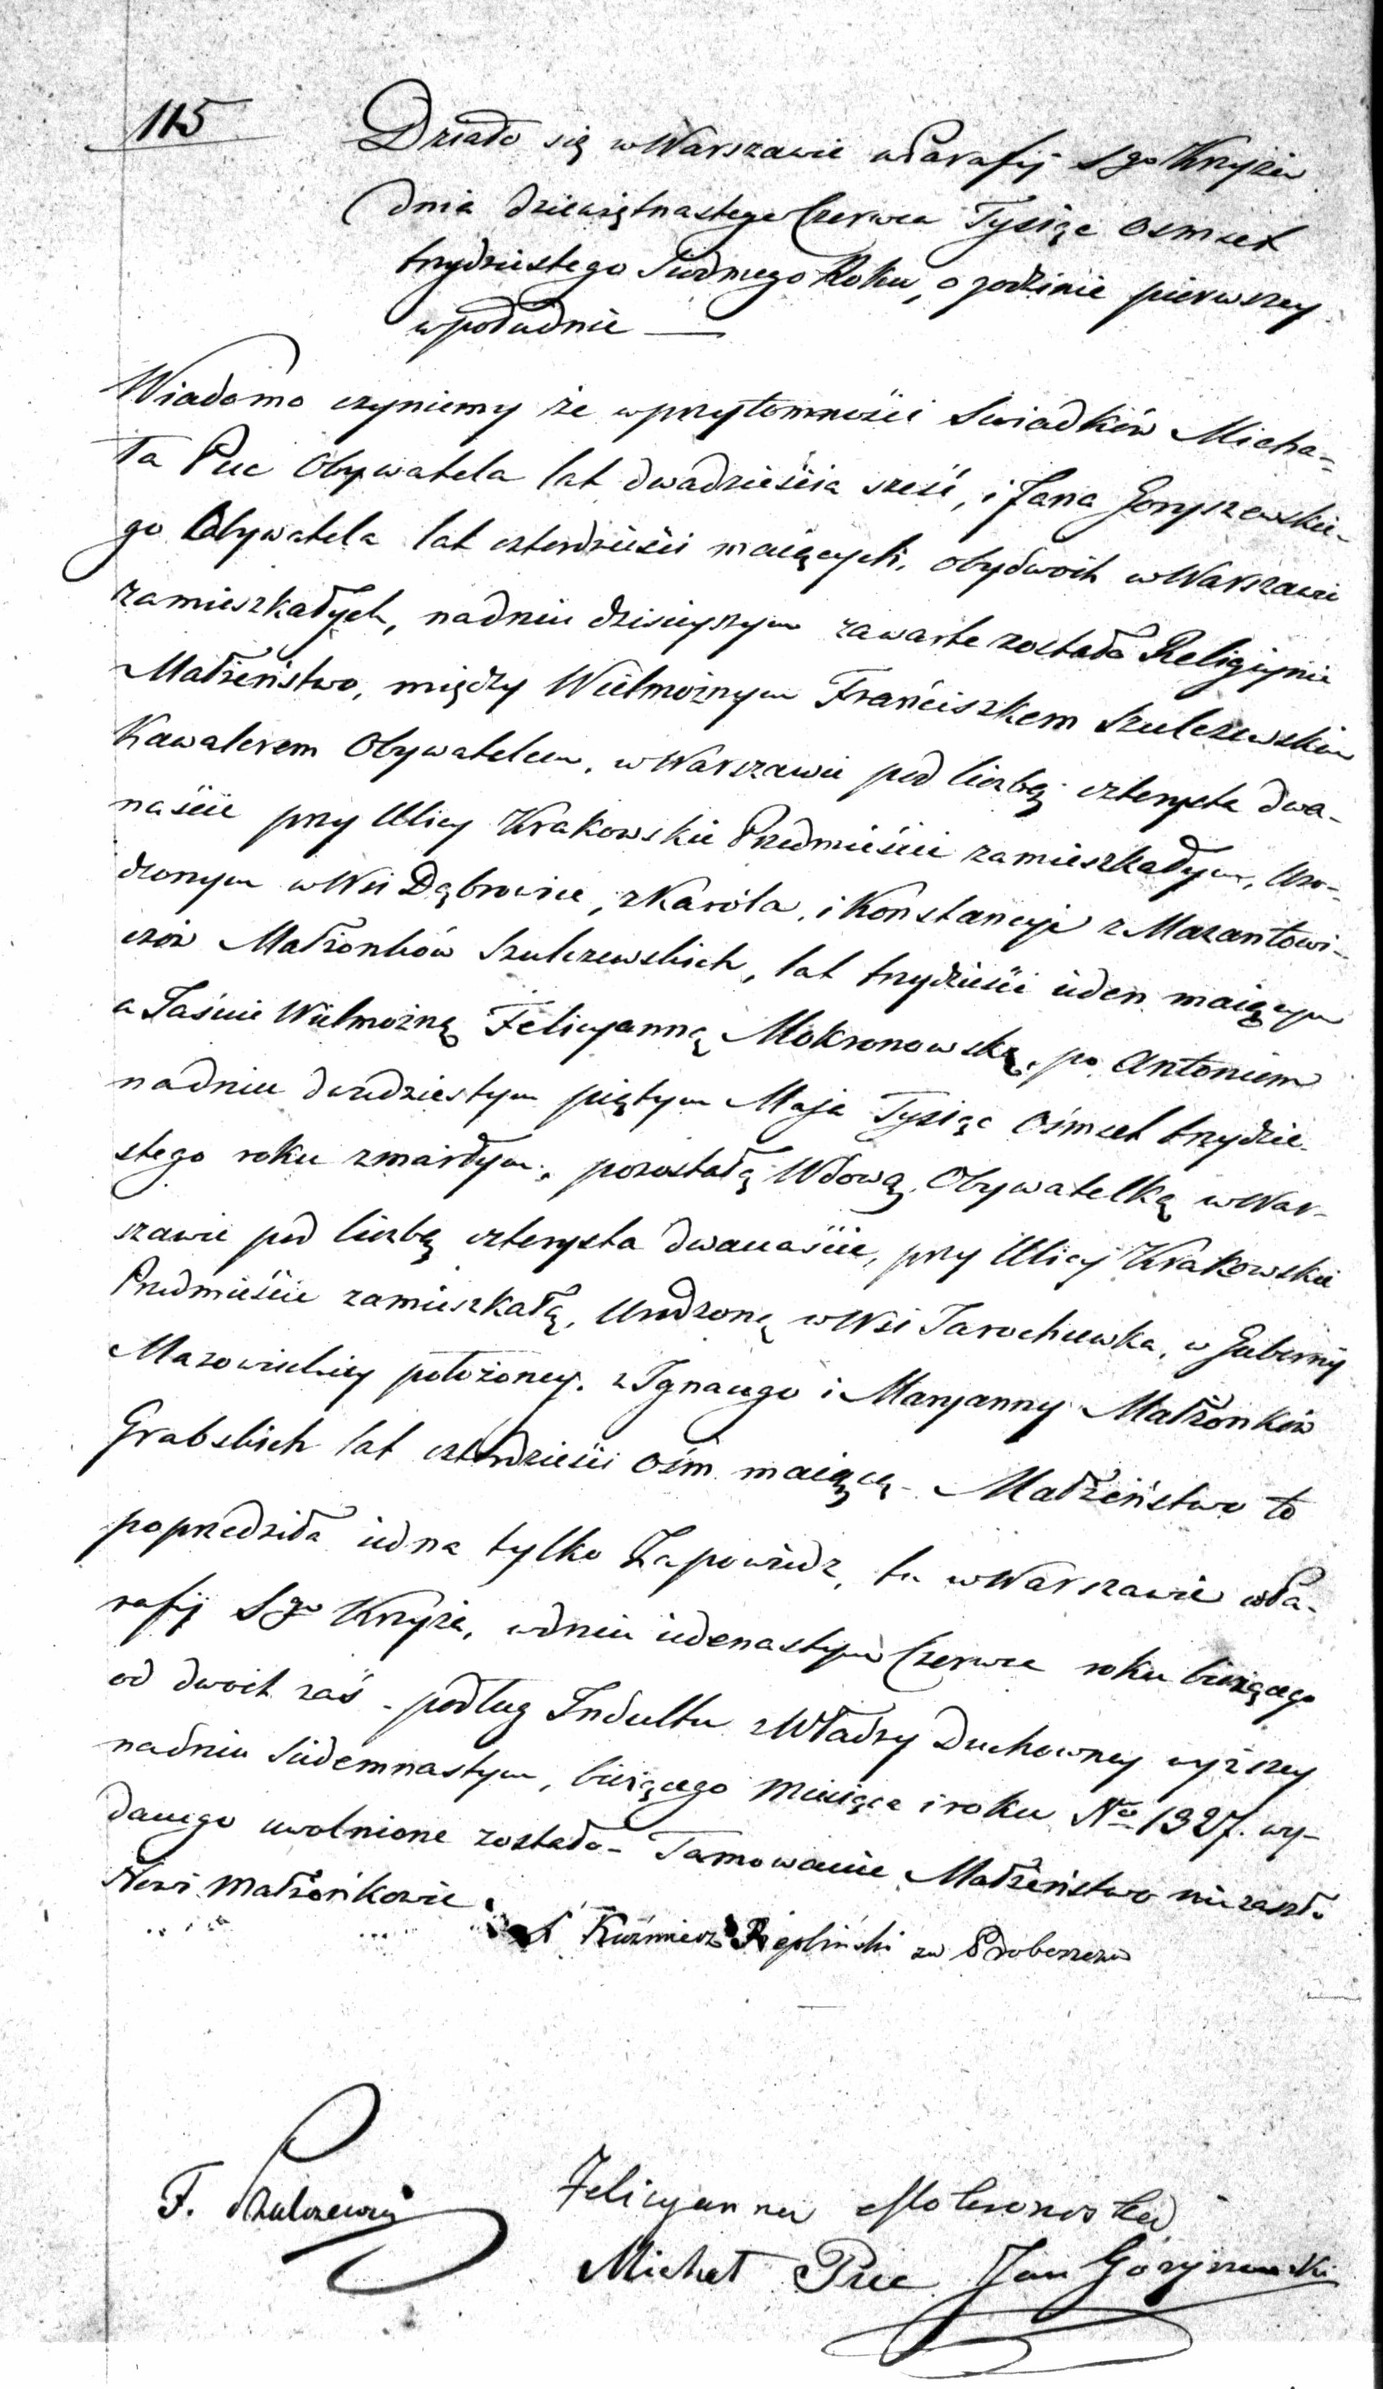 115
Działo się w Warszawie w Parafij Sgo Krzyża
dnia dziewiętnastego Czerwca Tysiąc osmset
trzydziestego Siudmego Roku, o godzinie pierwszey
w południe —
Wiadomo czyniemy że w przytomności Swiadków Micha-
ła Puc Obywatela lat dwadzieścia sześć, i Jana Goryszewskie-
go Obywatela lat czterdzieści maiących, obydwoch w Warszawie
zamieszkałych, na dniu dzisieyszym zawarte zostało Religijnie
Małżeństwo, między Wielmożnym Franciszkem Szulczewskim
Kawalerem Obywatelem, w Warszawie pod liczbą czterysta dwa-
naście przy Ulicy Krakowskie Przedmieście zamieszkałym, Uro-
dzonym w Wsi Dąbrowice, z Karóla, i Konstancyi z Mazantowi-
czów Małżonków Szulczewskich, lat trzydzieści ieden maiącym
a Jaśnie Wielmożną Felicyanną Mokronowską, po Antonim
na dniu dwudziestym piątym Maja Tysiąc Ośmset trzydzie-
stego roku zmarłym, pozostałą Wdową, Obywatelką w War-
szawie pod liczbą czterysta dwanaście, przy Ulicy Krakowskie
Przedmieście zamieszkałą, Urodzoną w Wsi Jarochuwka, w Gubernij
Mazowieckiey położoney, z Ignacego i Maryanny Małżonków
Grabskich lat czterdzieści ośm maiącą - Małżeństwo to
poprzedziła iedna tylko Zapowiedz, tu w Warszawie w Pa-
rafij Sgo Krzyża, w dniu iedenastym Czerwca roku bieżącego
od dwoch zaś - podług Indultu z Władzy Duchowney wyższey
na dniu Siedemnastym, bieżącego Miesiąca i roku No 1327. wy-
danego uwolnione zostało - Tamowanie Małżeństwa nie zaszło
Nowi Małżonkowie
X Kaźmierz Rzepliński za Proboszcza
F. Szulczewski
Felicyanna Mokronoska
Michał Puc Jan Góryszewski